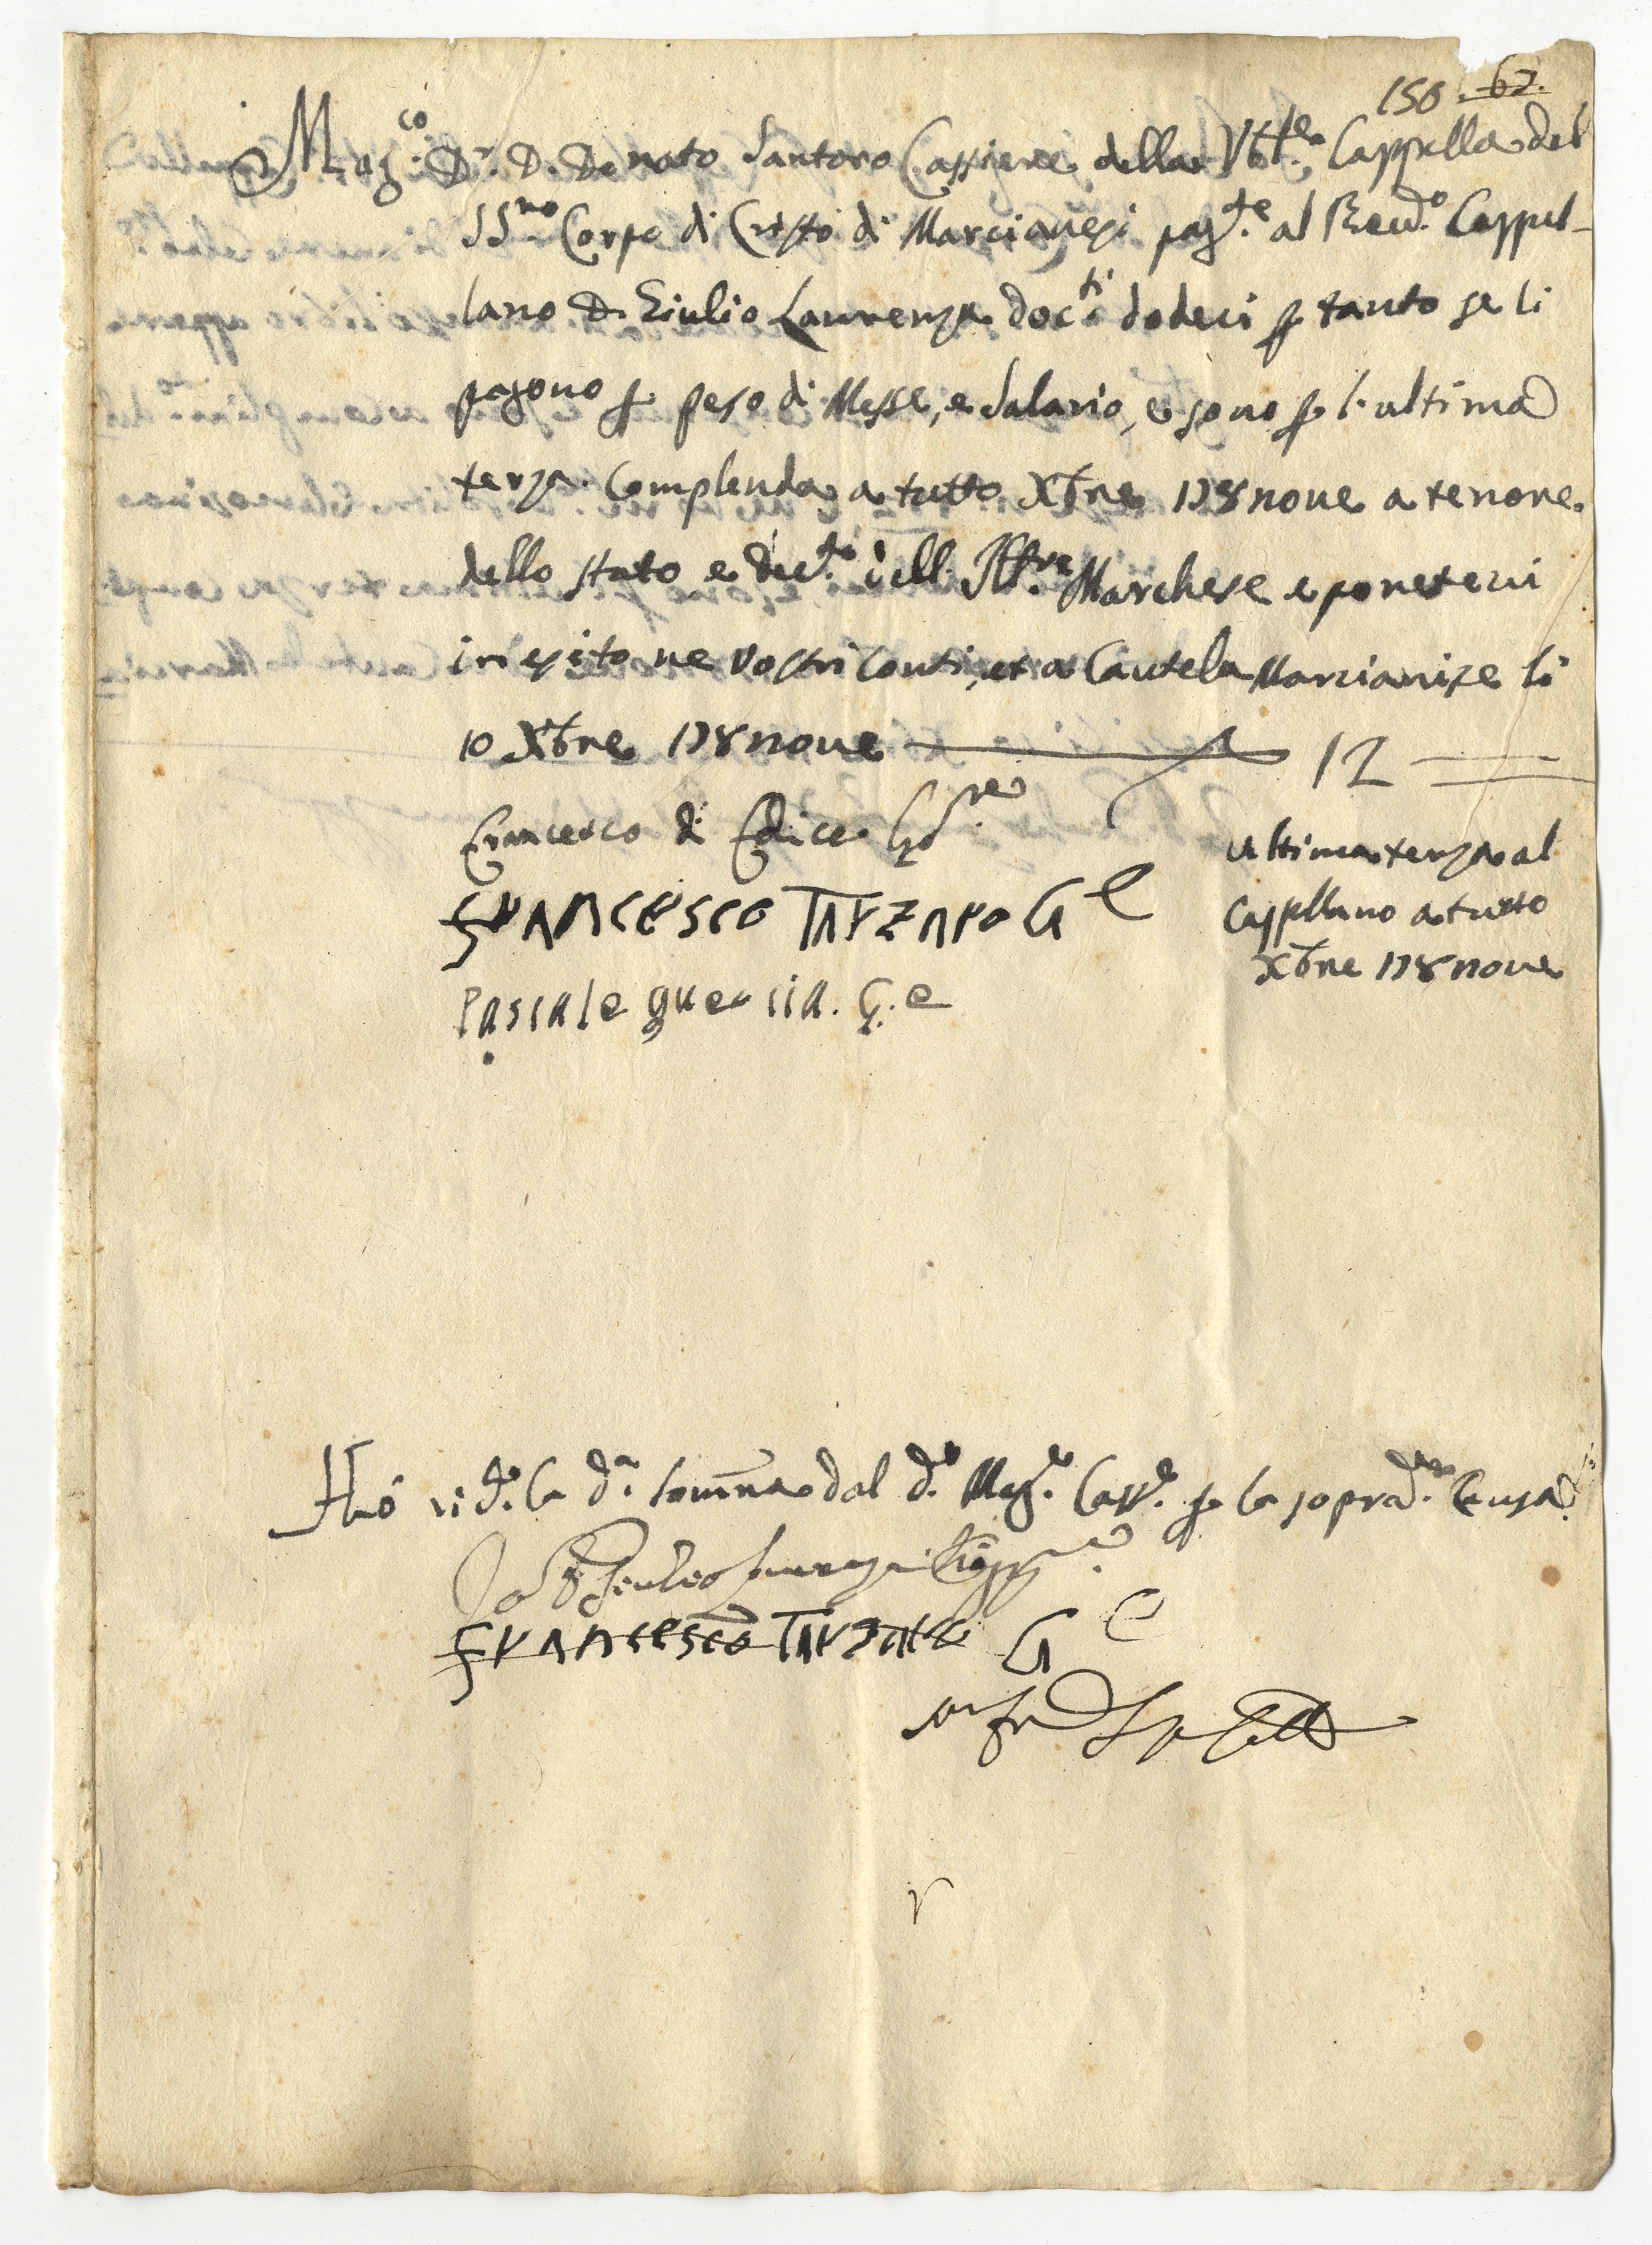 150 67.
Mag.co Dr. D. Donato Santoro Cassiere della Vble. Cappella del
SS.mo Corpo di Cristo di Marcianesi pag.te al Reud.o Cappel-
lano D. Giulio Laurenza doc.ti dodeci p tanto se li
pagono p peso di Messe, e Salario, e sono p l'ultima
terza complenda a tutto Xbre 178nove a tenore
dello stato e dec.to dell Ill.re Marchese e ponetevi
in esito ne vostri conti, et a Cautela Marcianise li
10 Xbre 178nove 12
Francesco di
ultima terza al
Cappellano a tutto
Xbre 178nove
Francesco Tarzaro G e
Pascale guercia. G.e
Hò ric.do la d.a somma dal d.o Mag.co Cass.e p la soprad.a Causa
Io D. Giulio Laurenza
Francesco Tarzaro G e